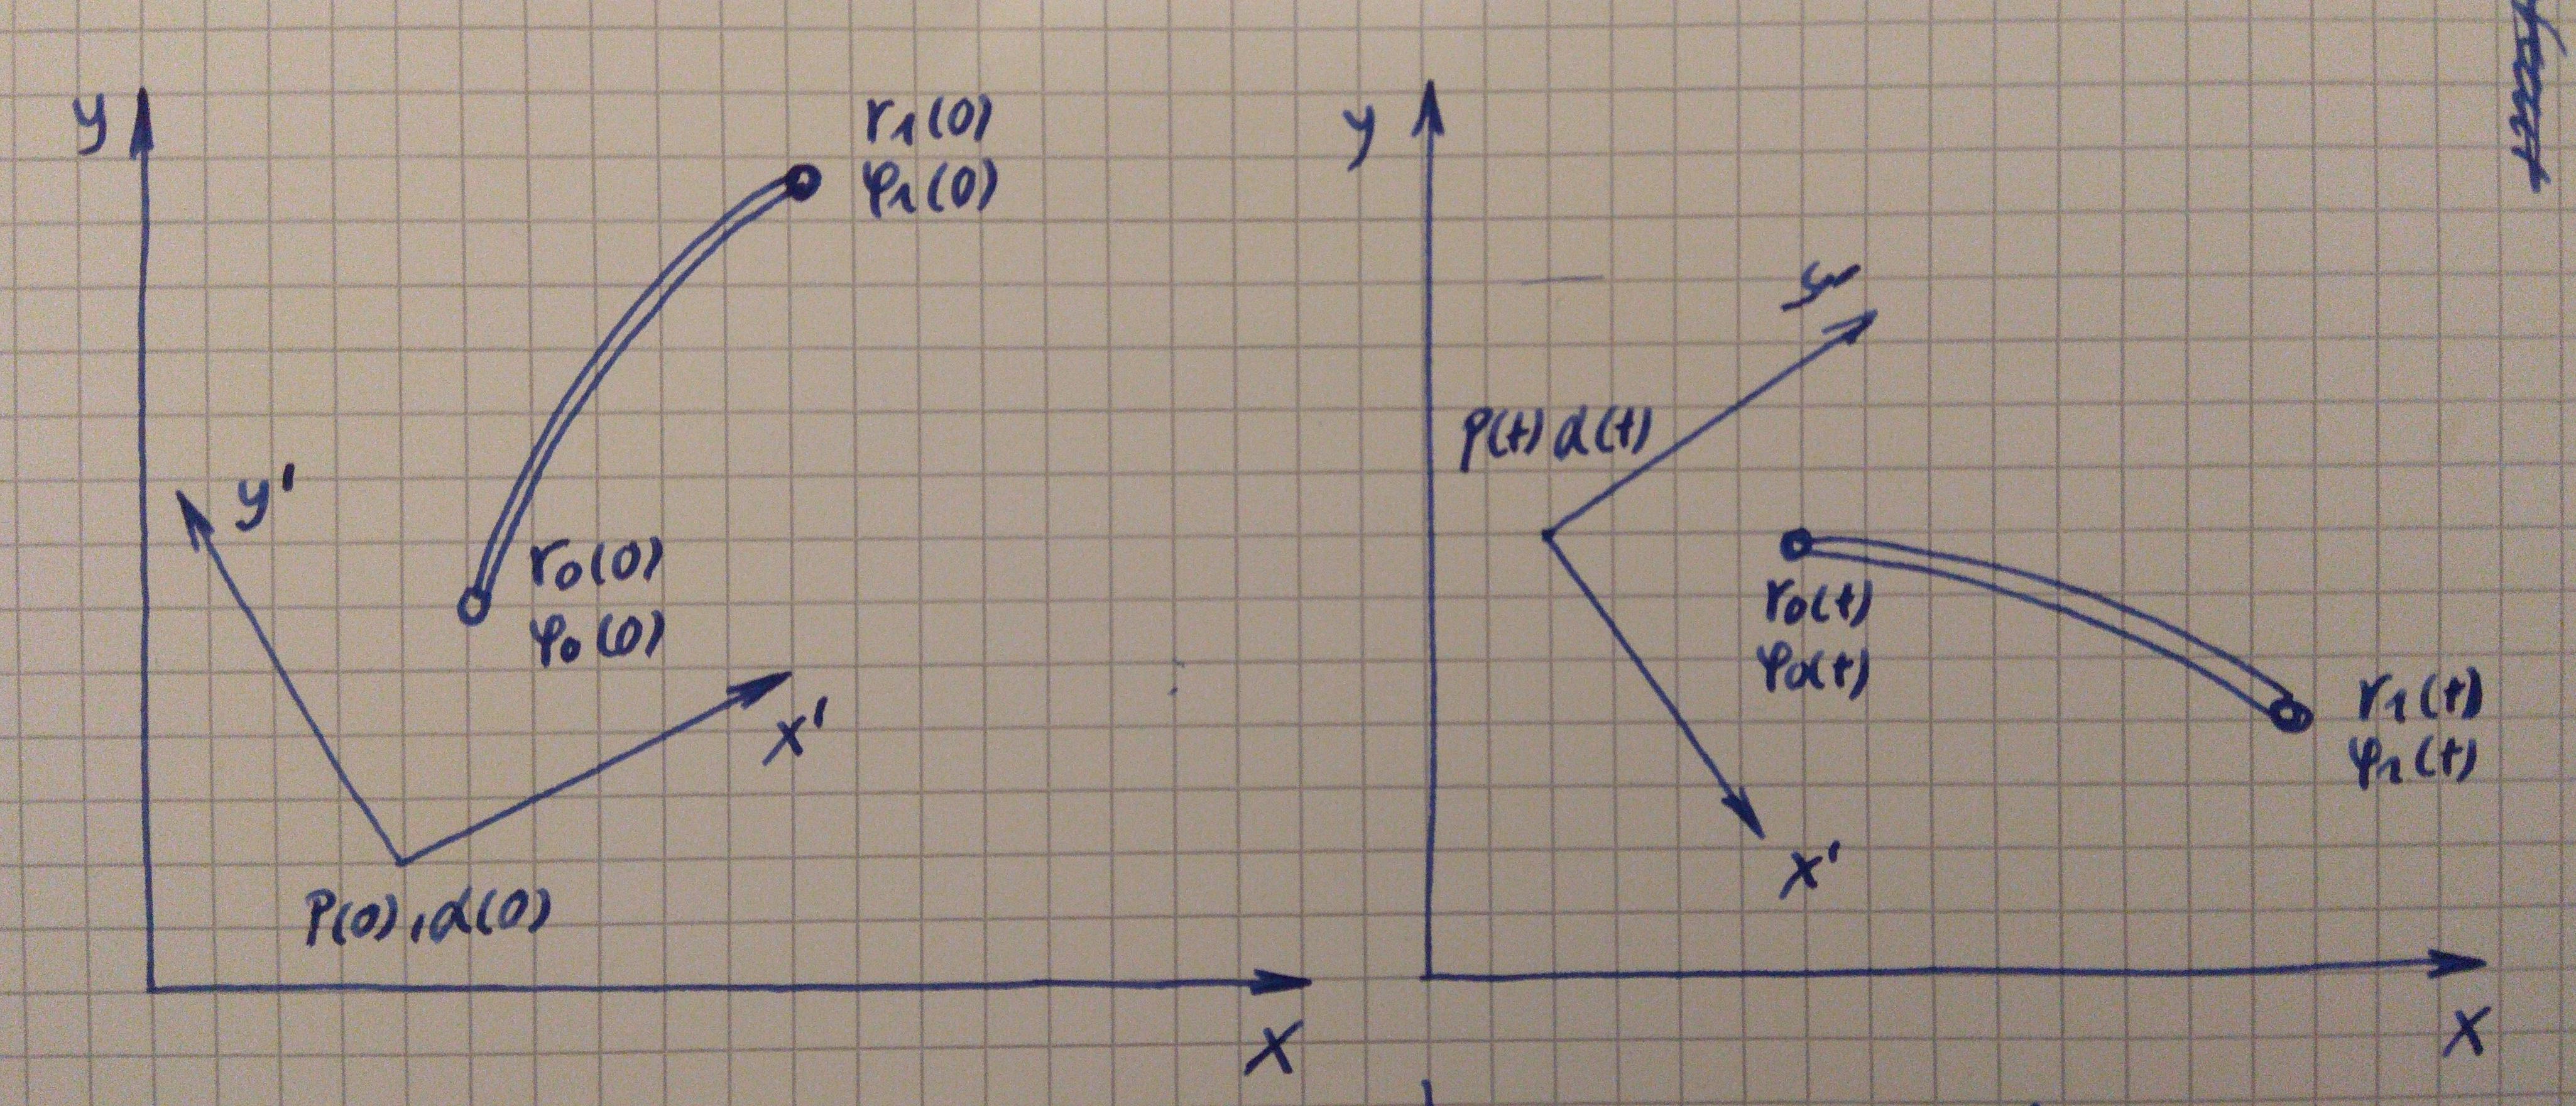 y
r₁(0)
φ₁(0)
y'
r₀(0)
φ₀(0)
x'
P(0), α(0)
x
y
y'
P(t) α(t)
r₀(t)
φ₀(t)
r₁(t)
φ₁(t)
x'
x